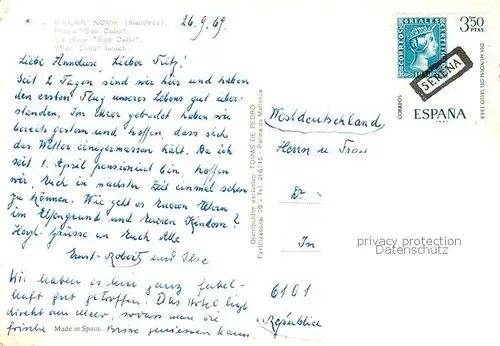 PALMA NOVA (Mallorca)
Playa "Son Caliu"
La plage "Son Caliu"
"Son Caliu" beach
26.9.69.
Liebe Anneliese, Lieber Fritz!
Seit 2 Tagen sind wir hier und haben
den ersten Flug unseres Lebens gut über-
standen. Im Meer gebadet haben wir
bereits gestern und hoffen, dass sich
das Wetter einigermassen hält. Da ich
seit 1. April pensioniert bin, hoffen
wir, Euch in nächster Zeit einmal sehen
zu können. Wie geht es Eueren Eltern
im Elfengrund und Eueren Kindern?
Herzl. Grüsse an Euch Alle
Ernst-Robert und Ilse
Wir haben es hier ganz fabel-
haft gut getroffen. Das Hotel liegt
direkt am Meer, sodass man die
frische Brise geniessen kann.
Made in Spain.
Distribuidor exclusivo: TOMAS DE PEDRO
Fertilizadora, 70 - Tel. 216715 - Palma de Mallorca
CORREOS REALES CERTIFICADO
1850
3,50
PTAS
DIA MUNDIAL DEL SELLO 1968
CORREOS
ESPAÑA
SERENA
Westdeutschland
Herrn u. Frau
Dr.
In
6101
Republica
privacy protection
Datenschutz